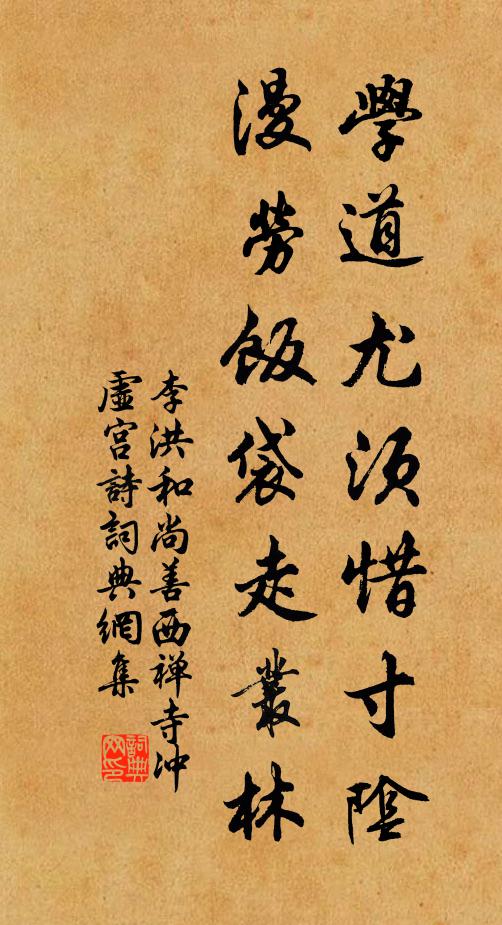 學道尤須惜寸陰
漫勞飯袋走叢林
李洪和尚善西禅寺冲
虛宮詩詞典網集
詞典
网印